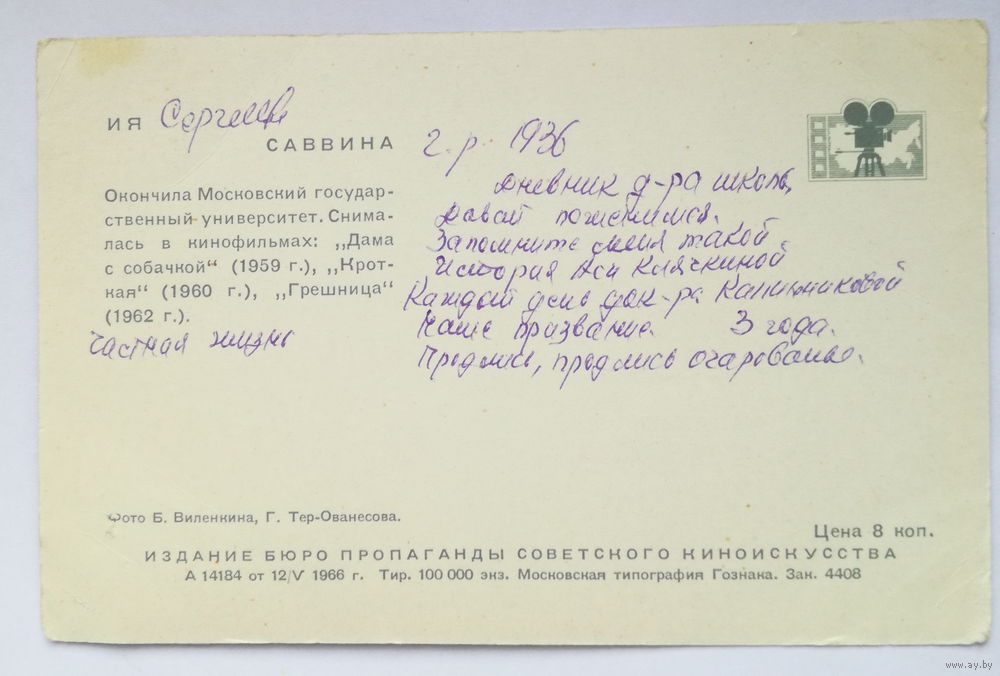 ИЯ Сергеев
САВВИНА
г.р. 1936
Окончила Московский государ-
ственный университет. Снима-
лась в кинофильмах: „Дама
с собачкой“ (1959 г.), „Крот-
кая“ (1960 г.), „Грешница“
(1962 г.).
Частная жизнь
Дневник д-ра школы,
Давай поженимся.
Запомните меня такой
История Аси Клячкиной
Каждый день док-ра Калинниковой
Наше призвание. 3 года.
Продлись, продлись очарованье.
Фото Б. Виленкина, Г. Тер-Ованесова.
Цена 8 коп.
ИЗДАНИЕ БЮРО ПРОПАГАНДЫ СОВЕТСКОГО КИНОИСКУССТВА
А 14184 от 12/V 1966 г. Тир. 100 000 экз. Московская типография Гознака. Зак. 4408
www.ay.by